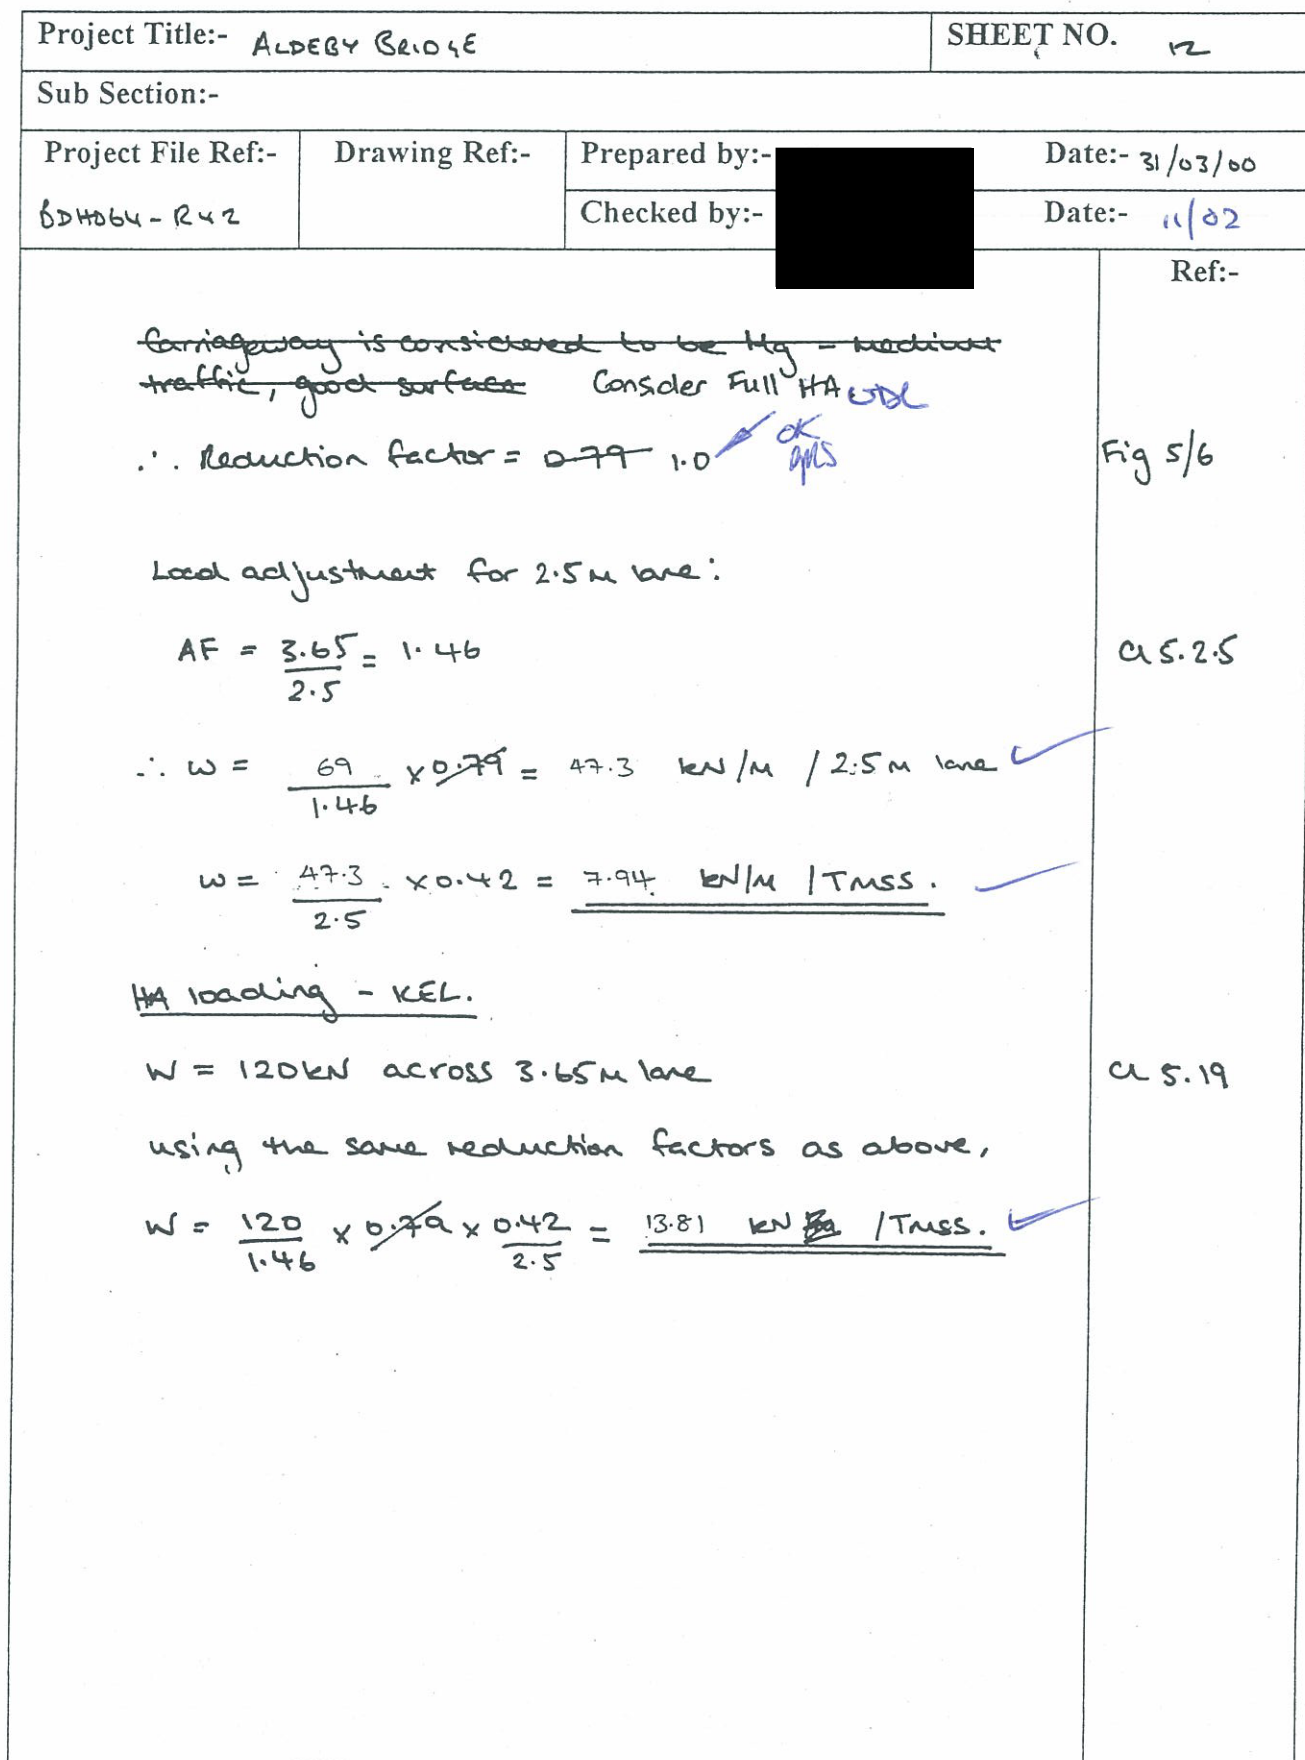 Project Title:- ALDEBY BRIDGE SHEET NO. 12
Sub Section:-
Project File Ref:- Drawing Ref:- Prepared by:- Date:- 31/03/00
BDHD64-R42 Checked by:- Date:- 11/02
Ref:-
Carriageway is considered to be Mg - medium
traffic, good surface Consider Full HA UDL
∴ Reduction factor = 0.79 1.0 OK Fig 5/6
Load adjustment for 2.5m lane:
AF = 3.65/2.5 = 1.46 Cl 5.2.5
∴ w = 69/1.46 × 0.79 = 47.3 kN/m / 2.5m lane ✓
w = 47.3/2.5 × 0.42 = 7.94 kN/m / Truss. ✓
HA loading - KEL.
W = 120kN across 3.65m lane Cl 5.19
using the same reduction factors as above,
W = 120/1.46 × 0.79 × 0.42/2.5 = 13.81 kN / Truss. ✓